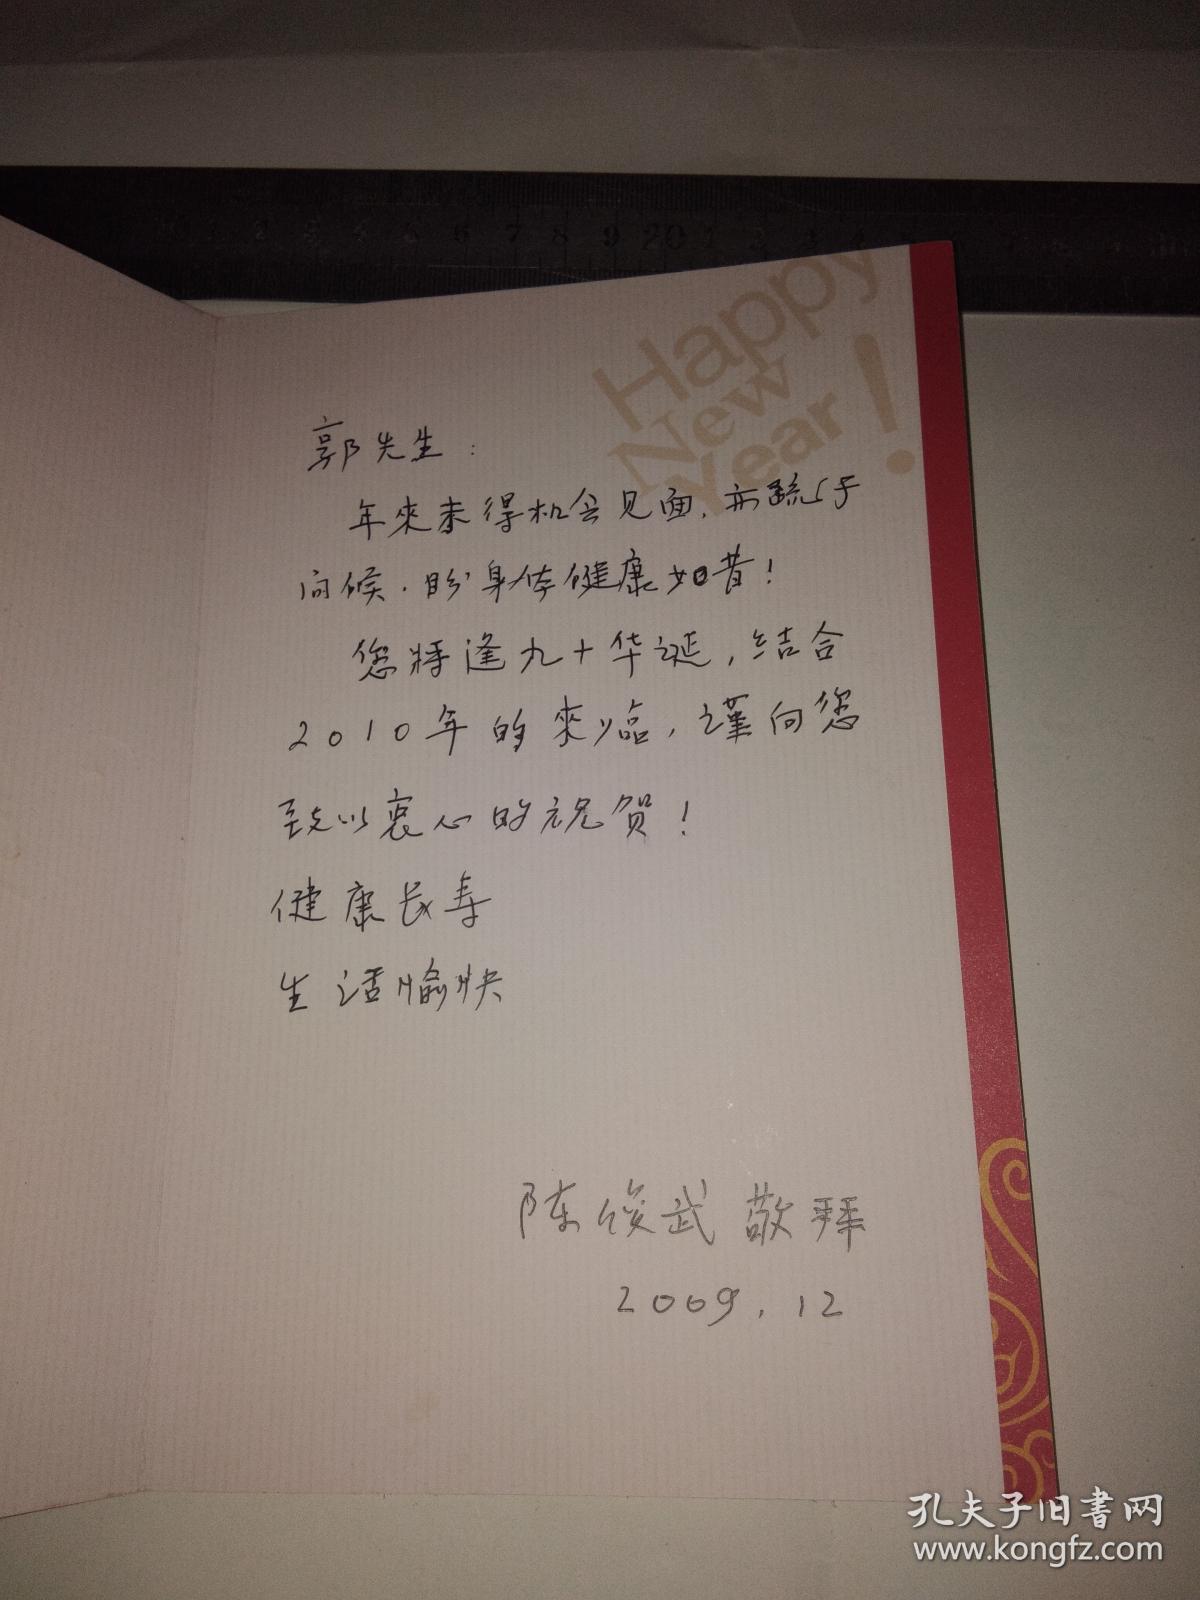 1 2 3 4 5 6 7 8 9 20 1 2 3 4
Happy
New
Year!
郭先生:
年來未得机会见面,亦疏于
问候.盼身体健康如昔!
您将逢九十华诞,结合
2010年的來临,谨向您
致以衷心的祝贺!
健康长寿
生活愉快
陈俊武敬拜
2009.12
孔夫子旧书网
www.kongfz.com